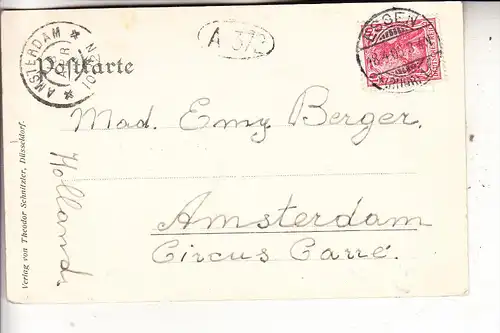 AMSTERDAM
A 373
ESSEN
Postkarte
Mad. Emy Berger.
Amsterdam
Circus Carré.
Holland.
Verlag von Theodor Schnitzler, Düsseldorf.